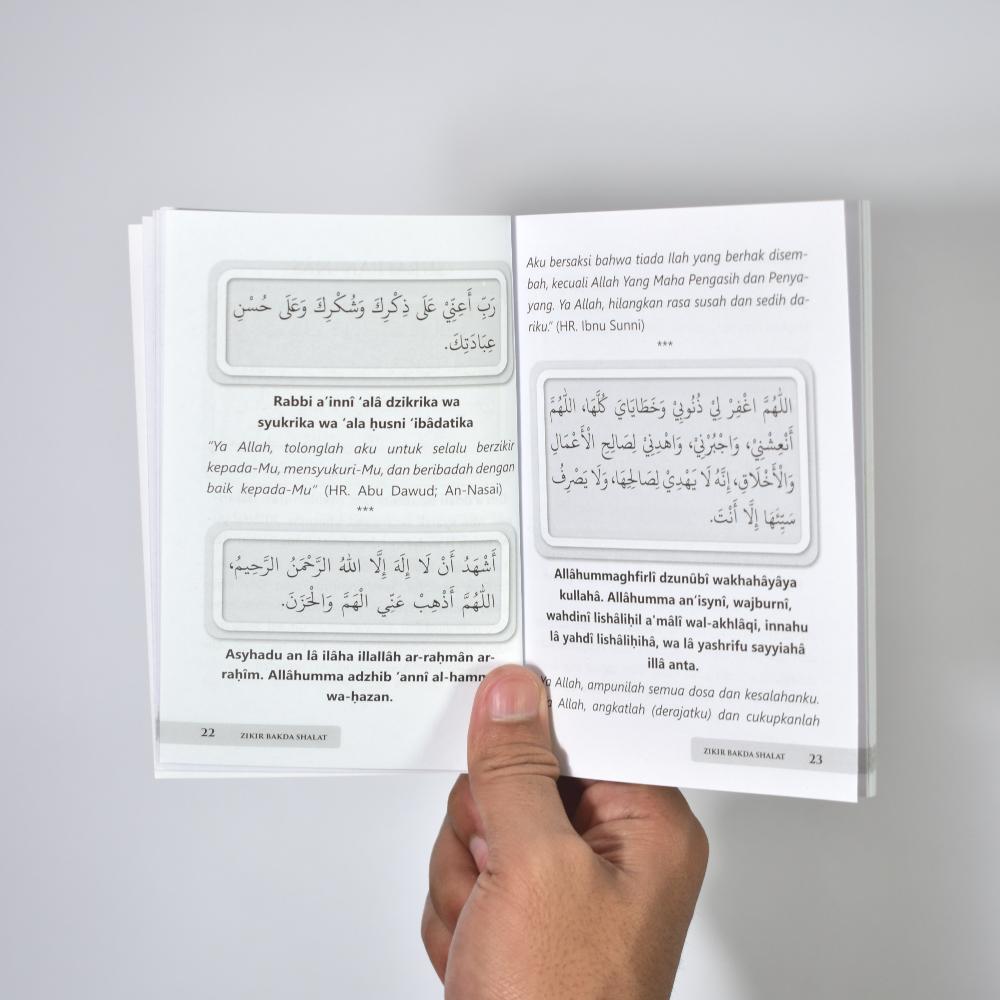 رَبِّ أَعِنِّيْ عَلَى ذِكْرِكَ وَشُكْرِكَ وَعَلَى حُسْنِ
عِبَادَتِكَ.
Rabbi a'innî 'alâ dzikrika wa
syukrika wa 'ala ḥusni 'ibâdatika
"Ya Allah, tolonglah aku untuk selalu berzikir
kepada-Mu, mensyukuri-Mu, dan beribadah dengan
baik kepada-Mu" (HR. Abu Dawud; An-Nasai)
***
أَشْهَدُ أَنْ لَا إِلَهَ إِلَّا اللهُ الرَّحْمَنُ الرَّحِيمُ،
اللَّهُمَّ أَذْهِبْ عَنِّي الْهَمَّ وَالْحَزَنَ.
Asyhadu an lâ ilâha illallâh ar-raḥmân ar-
raḥîm. Allâhumma adzhib 'annî al-hamm
wa-ḥazan.
22 ZIKIR BAKDA SHALAT
Aku bersaksi bahwa tiada Ilah yang berhak disem-
bah, kecuali Allah Yang Maha Pengasih dan Penya-
yang. Ya Allah, hilangkan rasa susah dan sedih da-
riku." (HR. Ibnu Sunni)
***
اللَّهُمَّ اغْفِرْ لِيْ ذُنُوبِيْ وَخَطَايَايَ كُلَّهَا، اللَّهُمَّ
أَنْعِشْنِيْ، وَاجْبُرْنِيْ، وَاهْدِنِيْ لِصَالِحِ الْأَعْمَالِ
وَالْأَخْلَاقِ، إِنَّهُ لَا يَهْدِيْ لِصَالِحِهَا، وَلَا يَصْرِفُ
سَيِّئَهَا إِلَّا أَنْتَ.
Allâhummaghfirlî dzunûbî wakhahâyâya
kullahâ. Allâhumma an'isynî, wajburnî,
wahdinî lishâliḥil a'mâli wal-akhlâqi, innahu
lâ yahdî lishâliḥihâ, wa lâ yashrifu sayyiahâ
illâ anta.
Ya Allah, ampunilah semua dosa dan kesalahanku.
Allah, angkatlah (derajatku) dan cukupkanlah
ZIKIR BAKDA SHALAT 23